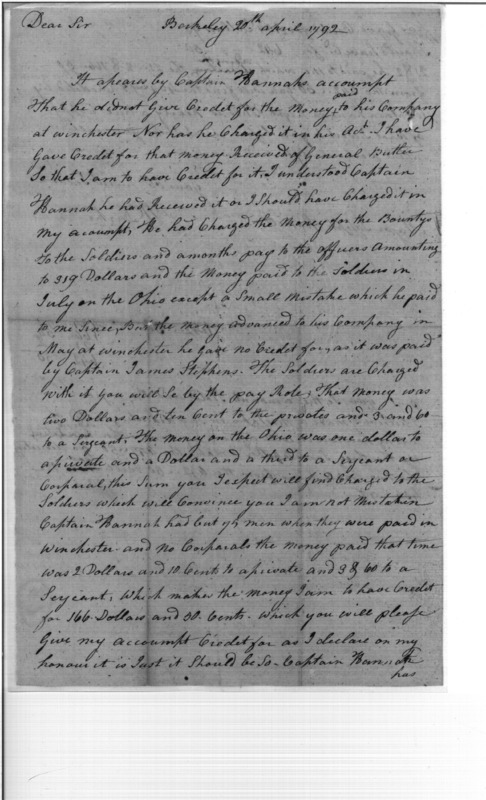 Dear Sir Berkeley 20th april 1792
It apeares by Captain Hannahs accoumpt
That he didnot Give Credet for the Money paid to his Company
at winchester Nor has he Charged it in his Act. I have
Gave Credet for that money Received of General Butler
So that I am to have Credet for it, I understood Captain
Hannah he had Received it or I Should have Charged it in
my acoumpt, He had Charged the Money for the Bountys
to the Soldiers and amonths pay to the officers Amounting
to 319 Dollars and the Money paid to the Soldiers in
July on the Ohio except a Small Mistake which he paid
to me Since, But the money advanced to his Company in
May at winchester he Gave no Credet for, as it was paid
by Captain James Stephens. The Soldiers are Charged
with it you will Se by the pay Role; That money was
two Dollars and ten Cent to the privates and 3 and 60
to a Sergeant, The money on the Ohio was one dollar to
aprivate and a Dollar and a third to a Serjeant or
Corparal, this Sum you Iespect will find Charged to the
Soldiers which will Convince you I am not Mistaken
Captain Hannah had but men when they were paid in
winchester and no Corparals the money paid that time
was 2 Dollars and 10 Cents to aprivate and 3 & 60 to a
Serjeant, which makes the money I am to have Credet
for 166 Dollars and 50 Cents. which you will please
Give my accoumpt Credet for as I declare on my
honour it is Just it Should be So - Captain Hannah
has